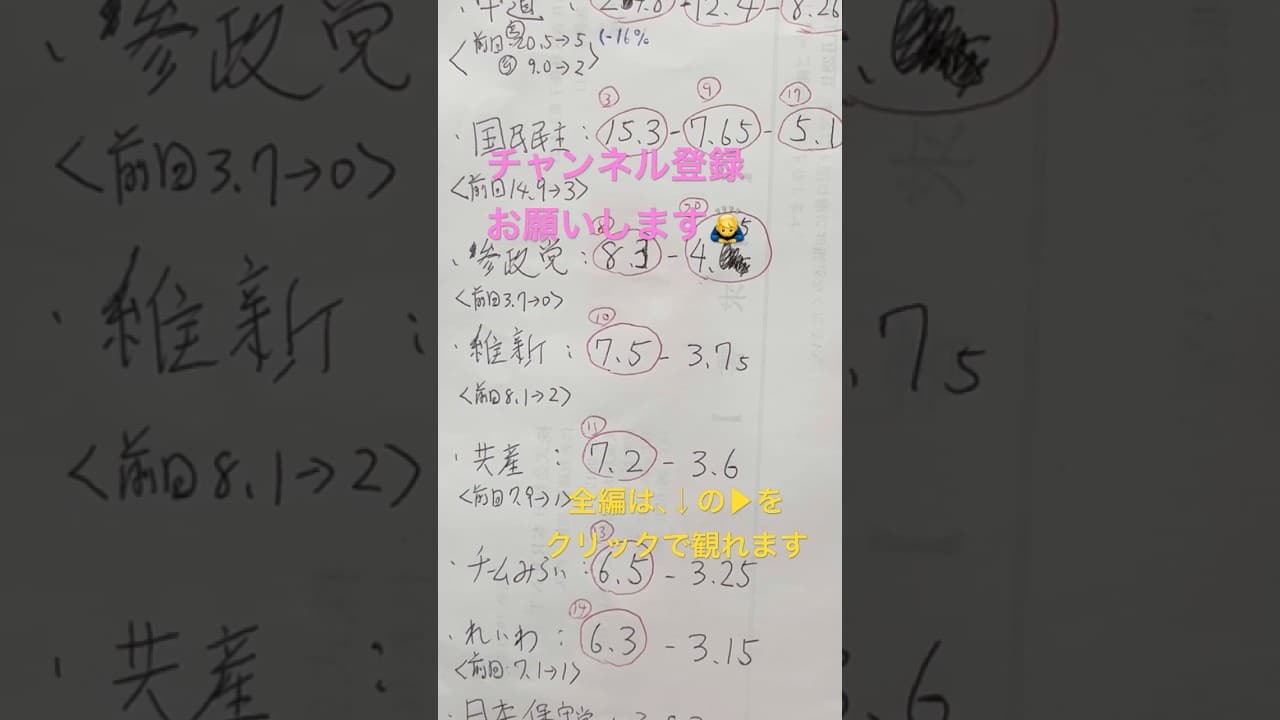 ・中道 : 24.8-12.4-8.26
<前回 20.5→5 (-16%
9.0→2>
③ ⑨ ⑰
・国民民主:15.3-7.65-5.1
<前回14.9→3>
チャンネル登録
お願いします🙇
⑧ ⑳
・参政党:8.3-4.
<前回3.7→0>
⑩
・維新:7.5-3.75
<前回8.1→2>
⑪
・共産:7.2-3.6
<前回7.9→1>
全編は、↓の▶を
クリックで観れます
⑬
・チームみらい:6.5-3.25
⑭
・れいわ:6.3-3.15
<前回7.1→1>
・日本保守党